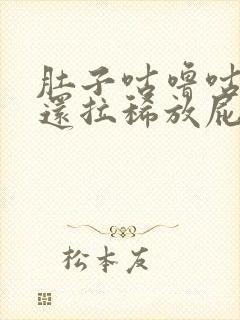 肚子咕噜咕
還拉稀放屁
松本友